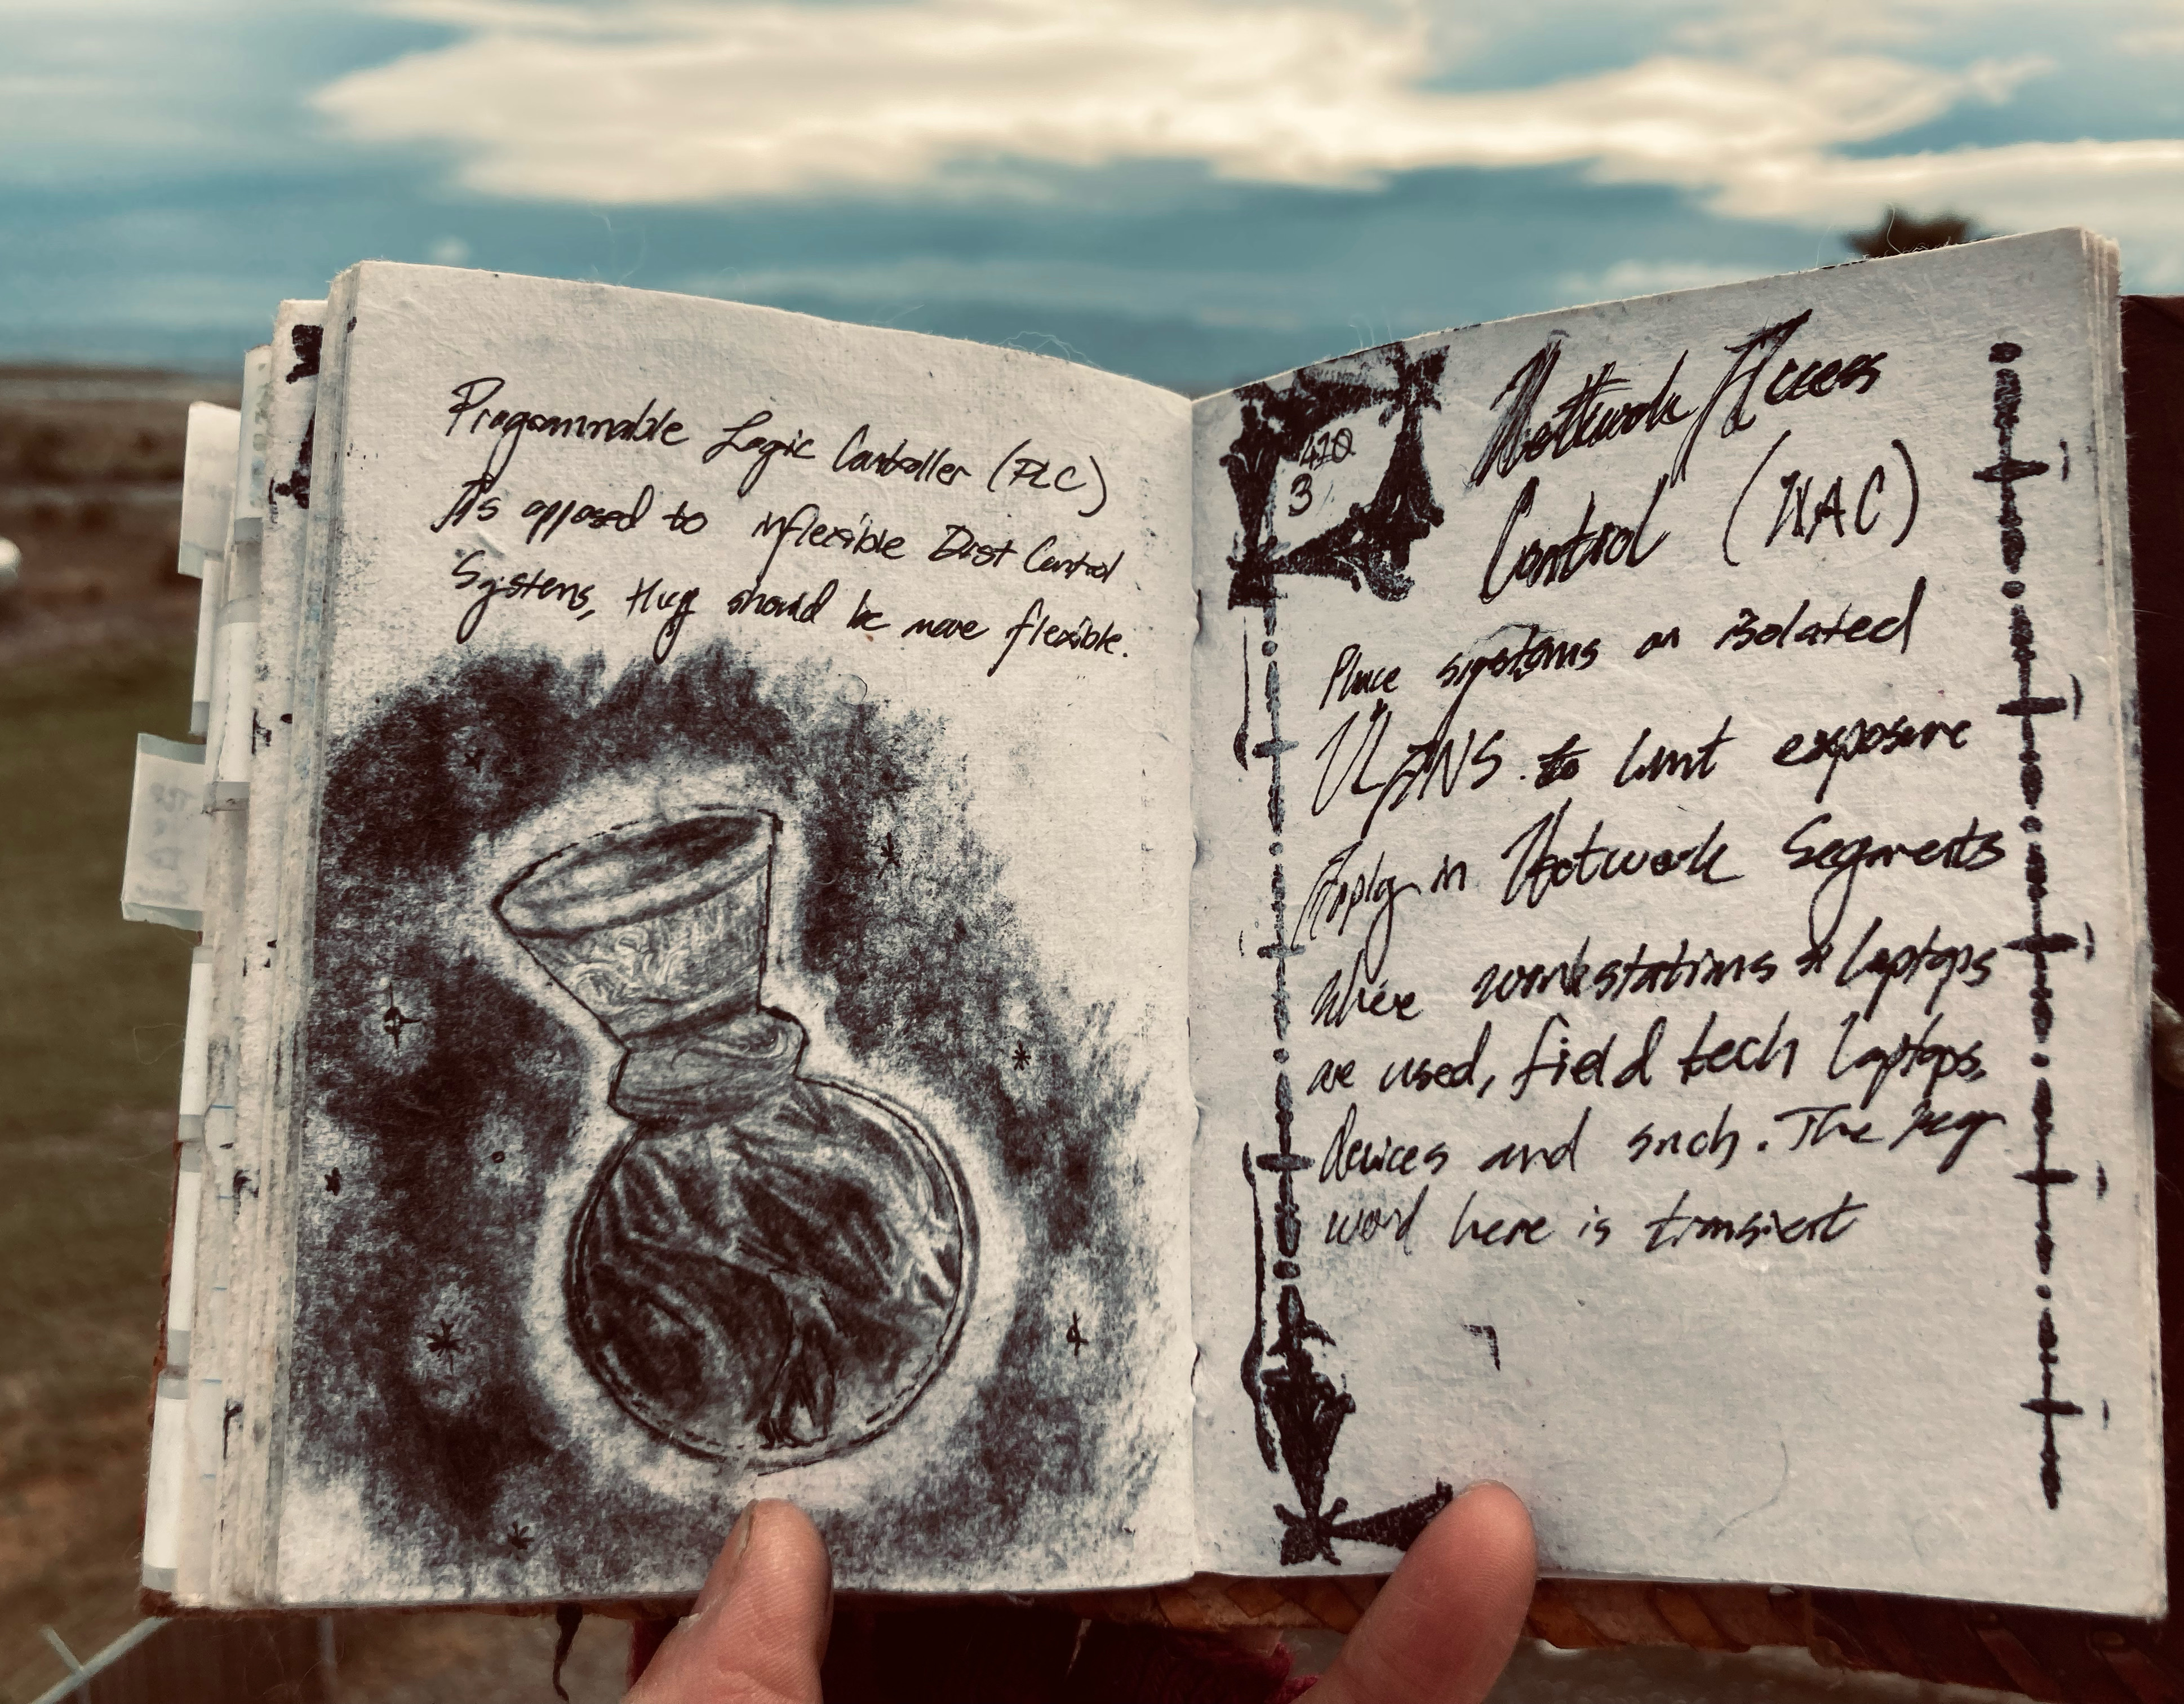 Programmable Logic Controller (PLC)
As opposed to inflexible Dist Control
Systems, they should be more flexible.
410
3
Network Access
Control (NAC)
Place systems on isolated
VLANS to limit exposure
Apply in Network Segments
where workstations & laptops
are used, field tech laptops,
devices and such. The key
word here is transient